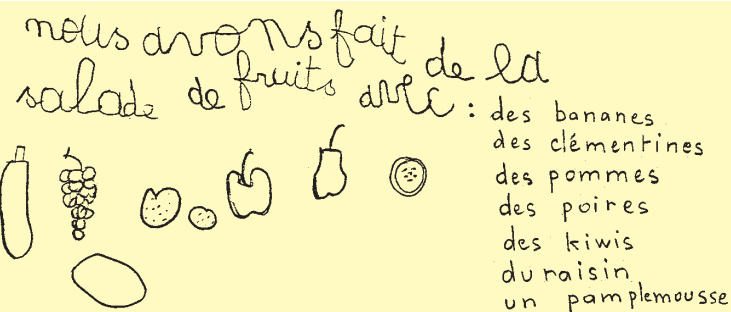 nous avons fait de la
salade de fruits avec :
des bananes
des clémentines
des pommes
des poires
des kiwis
du raisin
un pamplemousse